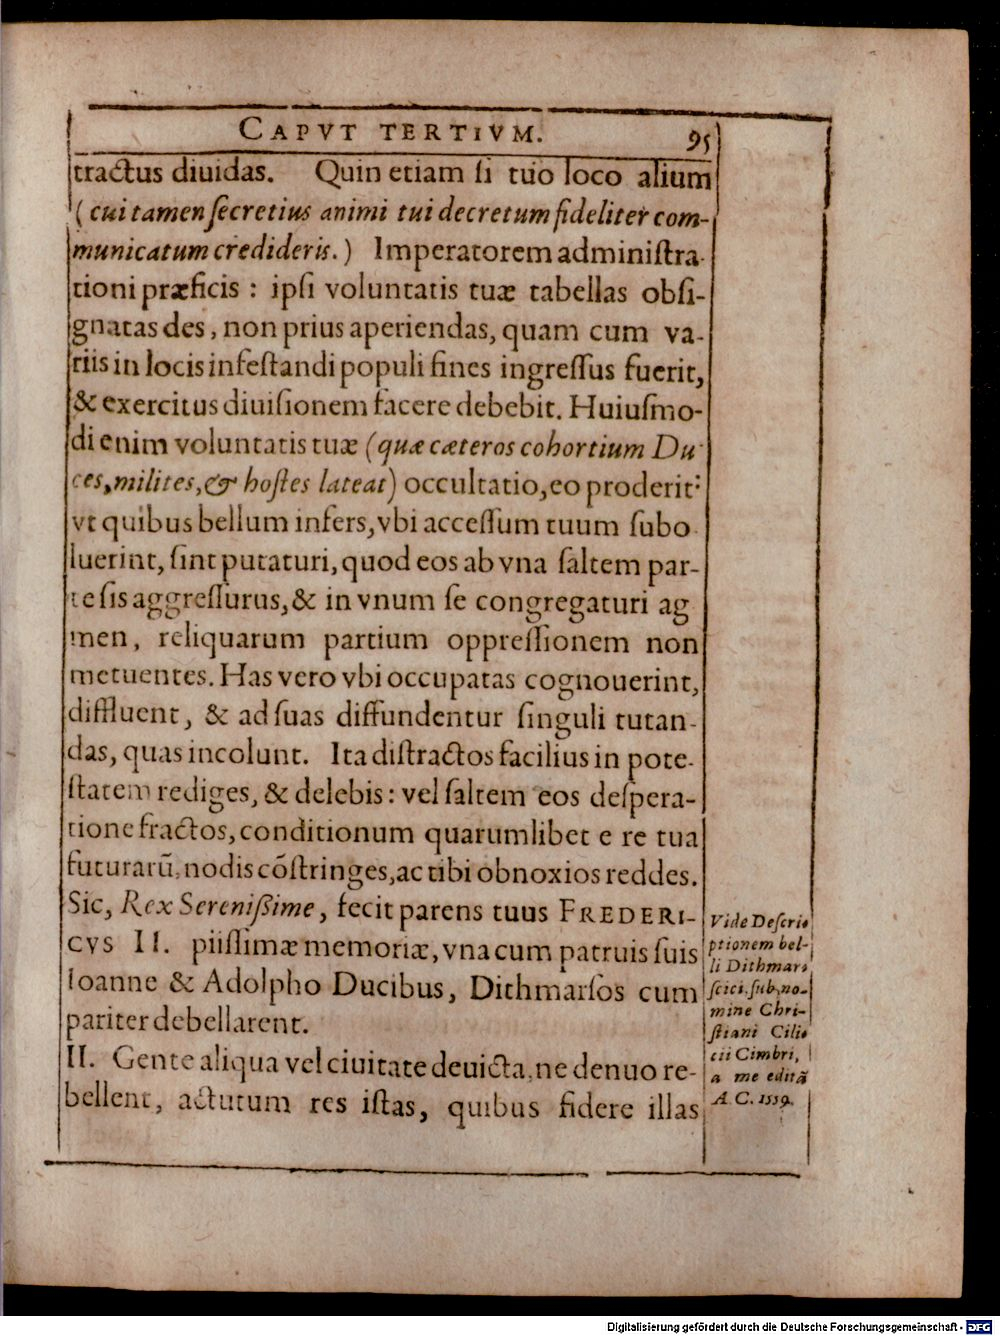 CAPVT TERTIVM. 95
tractus diuidas. Quin etiam ſi tuo loco alium
(cui tamen ſecretius animi tui decretum fideliter com-
municatum credideris.) Imperatorem adminiſtra-
tioni præficis : ipſi voluntatis tuæ tabellas obſi-
gnatas des, non prius aperiendas, quam cum va-
riis in locis infeſtandi populi fines ingreſſus fuerit,
& exercitus diuiſionem facere debebit. Huiuſmo-
di enim voluntatis tuæ (quæ cæteros cohortium Du-
ces, milites, & hoſtes lateat) occultatio, eo proderit:
vt quibus bellum infers, vbi acceſſum tuum ſubo-
luerint, ſint putaturi, quod eos ab vna ſaltem par-
te ſis aggreſſurus, & in vnum ſe congregaturi ag
men, reliquarum partium oppreſſionem non
metuentes. Has vero vbi occupatas cognouerint,
diffluent, & ad ſuas diffundentur ſinguli tutan-
das, quas incolunt. Ita diſtractos facilius in pote-
ſtatem rediges, & delebis: vel ſaltem eos deſpera-
tione fractos, conditionum quarumlibet e re tua
futurarũ, nodis cõſtringes, ac tibi obnoxios reddes.
Sic, Rex Sereniſſime, fecit parens tuus FREDERI-
CVS II. piiſſimæ memoriæ, vna cum patruis ſuis
Ioanne & Adolpho Ducibus, Dithmarſos cum
pariter debellarent.
II. Gente aliqua vel ciuitate deuicta, ne denuo re-
bellent, actutum res iſtas, quibus fidere illas
Vide Deſcri-
ptionem bel-
li Dithmar-
ſcici. ſub, no-
mine Chri-
ſtiani Cili-
cii Cimbri,
a me editã
A. C. 1559.
Digitalisierung gefördert durch die Deutsche Forschungsgemeinschaft - DFG